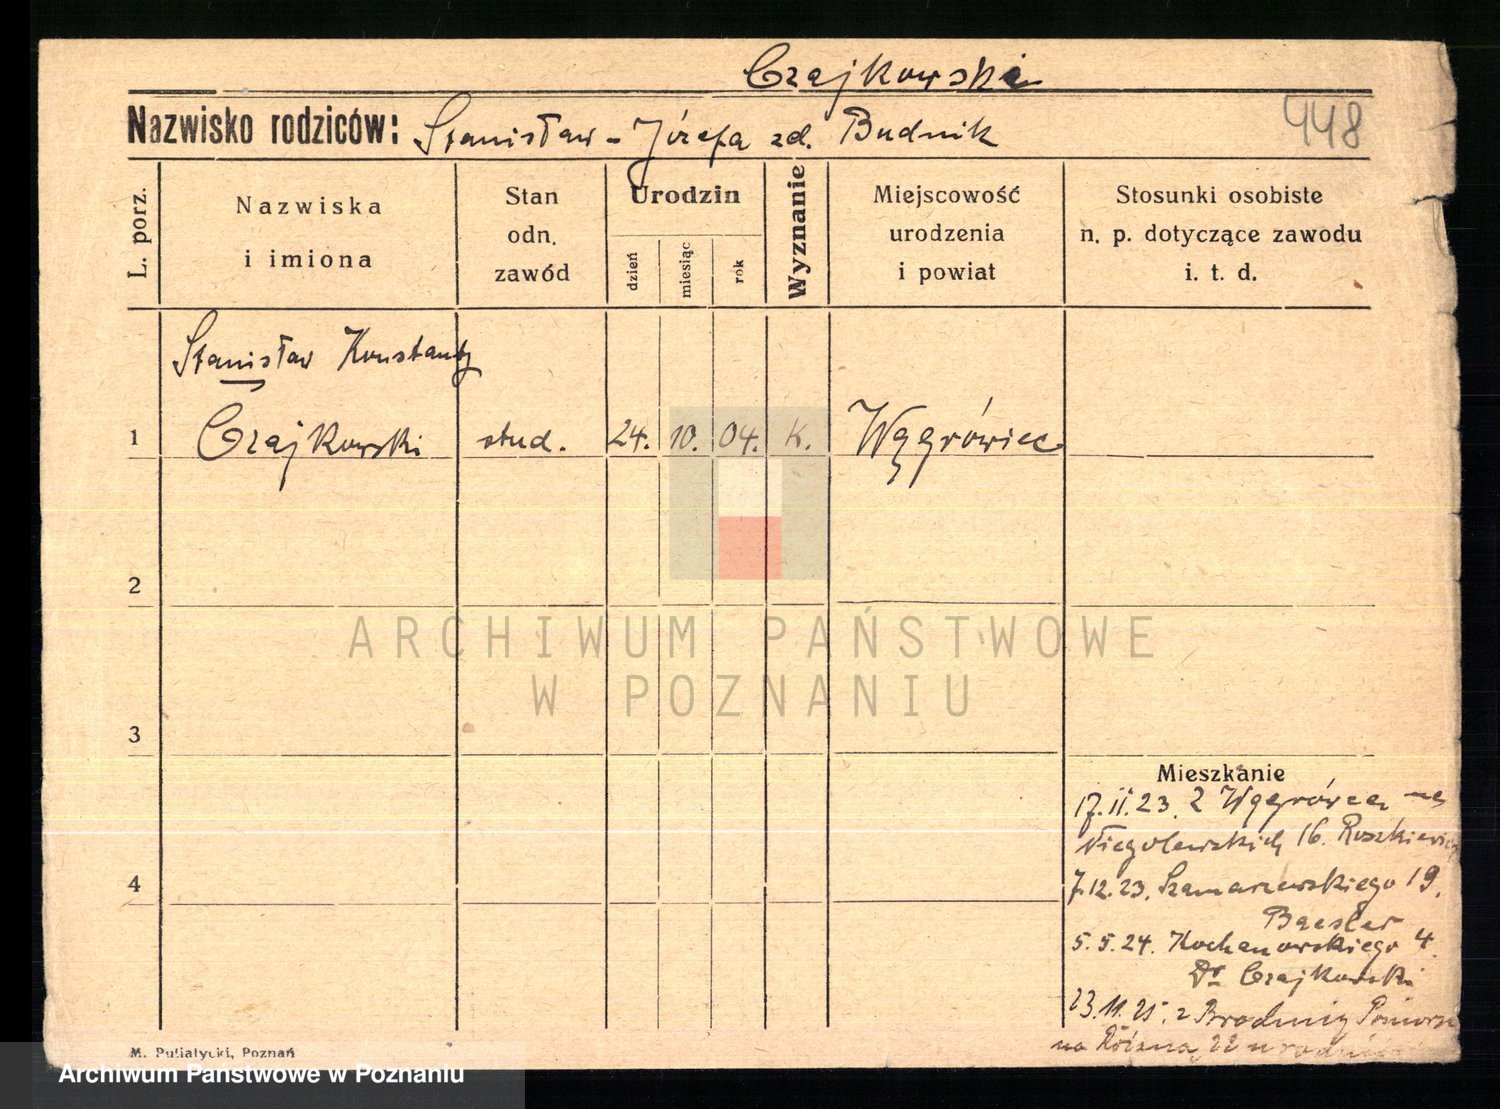 Czajkowski
Nazwisko rodziców: Stanisław - Józefa zd. Budnik
448
L. porz.
Nazwiska
i imiona
Stan
odn.
zawód
Urodzin
dzień
miesiąc
rok
Wyznanie
Miejscowość
urodzenia
i powiat
Stosunki osobiste
n. p. dotyczące zawodu
i. t. d.
Stanisław Konstanty
1 Czajkowski stud. 24. 10. 04. k. Wągrówiec
2
ARCHIWUM PAŃSTWOWE
W POZNANIU
3
4
Mieszkanie
17.11.23. z Wągrówca na
Niegolewskich 16. Ruszkiewicz
7.12.23. Szamarzewskiego 19.
Baesler
5.5.24. Kochanowskiego 4.
Dr Czajkowski
23.11.25. z Brodnicy Pomorze
na Różna 22 u
M. Putiatycki, Poznań
Archiwum Państwowe w Poznaniu